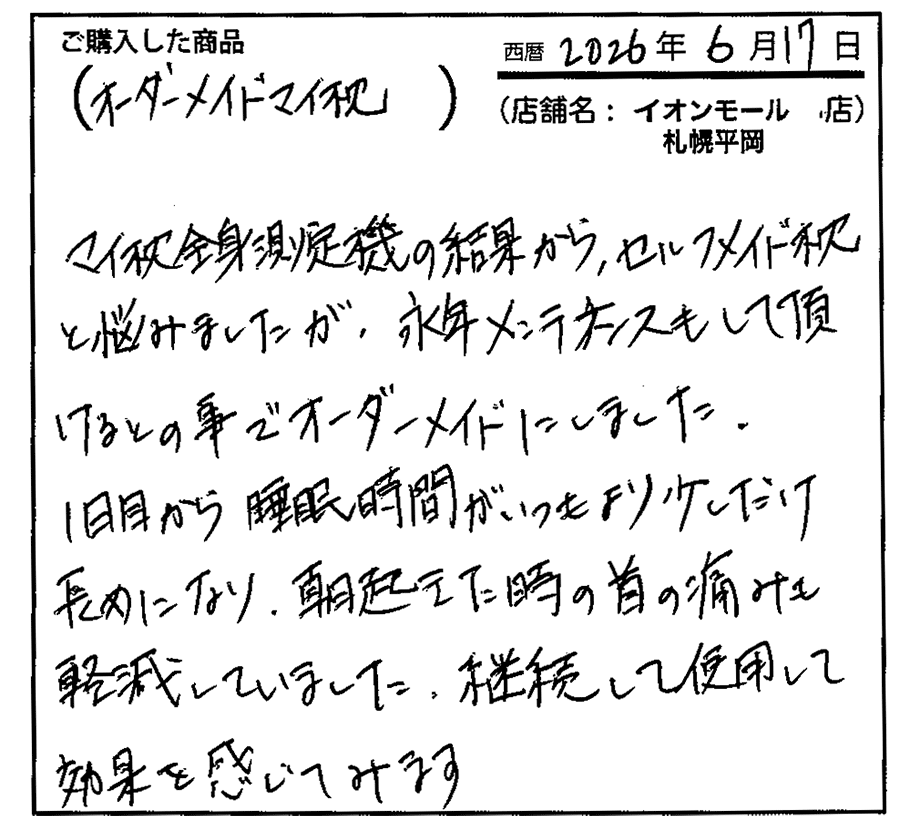 ご購入した商品
(オーダーメイドマイ枕)
西暦 2026年 6月17日
(店舗名： イオンモール 店)
札幌平岡
マイ枕全身測定機の結果から、セルフメイド枕
と悩みましたが、永年メンテナンスもして頂
けるとの事でオーダーメイドにしました。
1日目から睡眠時間がいつもより少しだけ
長めになり、朝起きた時の首の痛みも
軽減していました。継続して使用して
効果を感じてみます